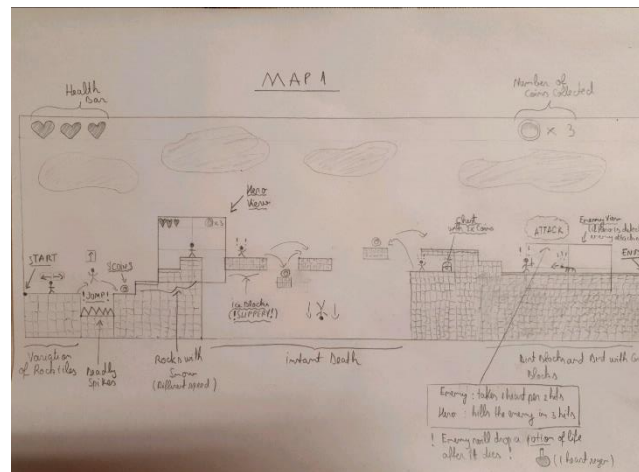 MAP 1
Health
Bar
Number of
Coins Collected
× 3
Hero
View
Chest
with
Coins
ATTACK
Enemy View
START
END
COINS
!JUMP!
Ice Blocks
(!SLIPPERY!)
Variation
of Rock tiles
Deadly
Spikes
Rock with
Snow
(Different speed)
instant Death
Dirt Blocks and Dirt with
Blocks
Enemy : takes 1 heart per 2 hits
Hero : kills the enemy in 3 hits
! Enemy will drop a potion of life
after it dies !
(1 heart regen)